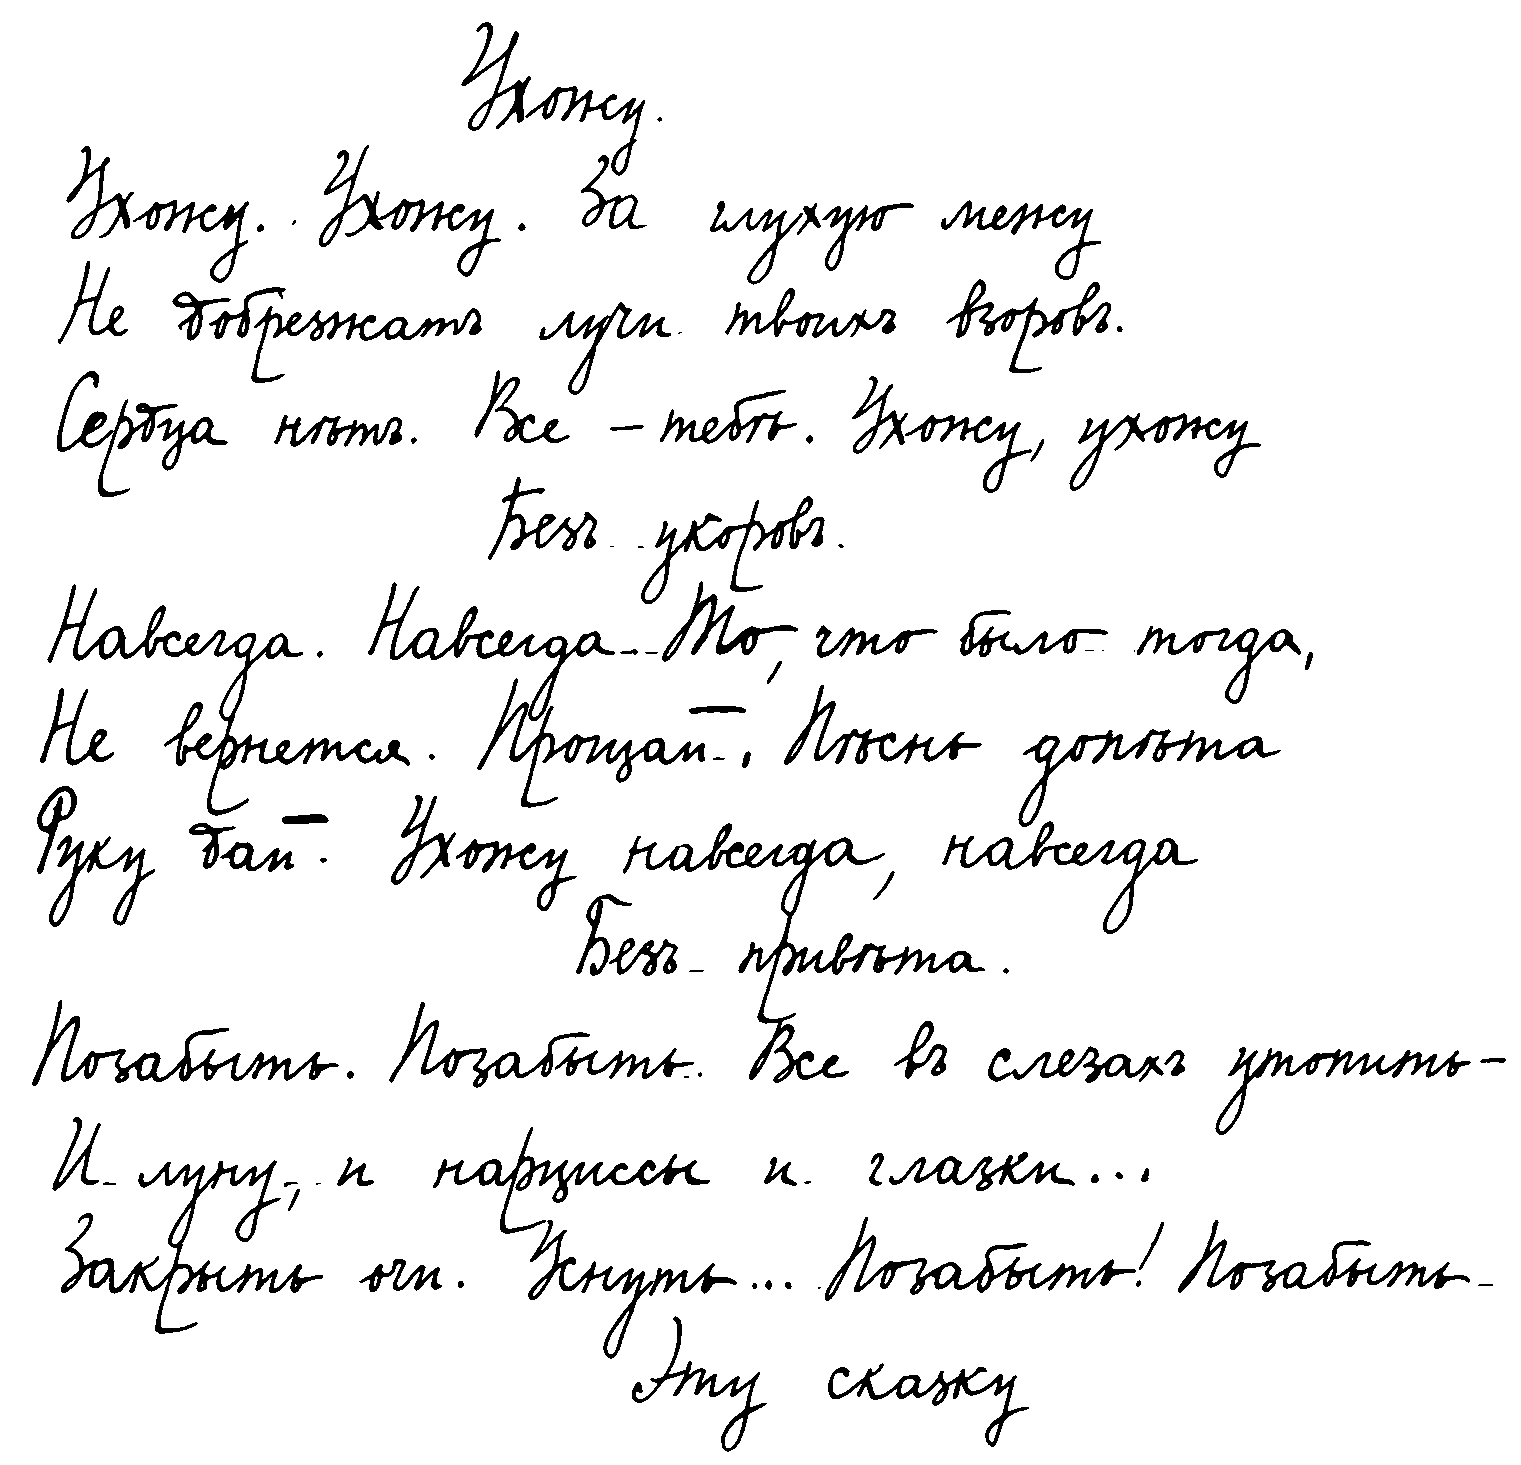 Ухожу.
Ухожу. Ухожу. За глухую межу
Не добрезжатъ лучи твоихъ взоровъ.
Сердца нѣтъ. Все – тебѣ. Ухожу, ухожу
Безъ укоровъ.
Навсегда. Навсегда. То, что было тогда,
Не вернется. Прощай. Пѣснь допѣта
Руку дай. Ухожу навсегда, навсегда
Безъ привѣта.
Позабыть. Позабыть. Все въ слезахъ утопить –
И луну, и нарциссы и глазки...
Закрыть очи. Уснуть... Позабыть! Позабыть
Эту сказку